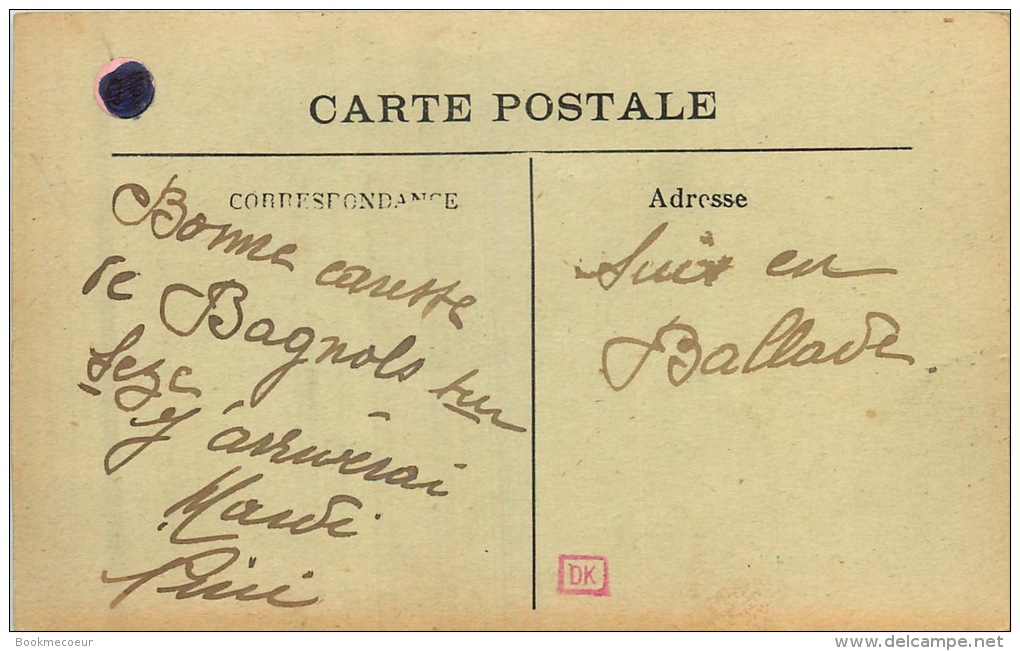 CARTE POSTALE
CORRESPONDANCE
Bonne caresse
de Bagnols sur
Seze
J'arriverai
Mardi
Adresse
Suis en
Ballade.
DK
Bookmecoeur
www.delcampe.net